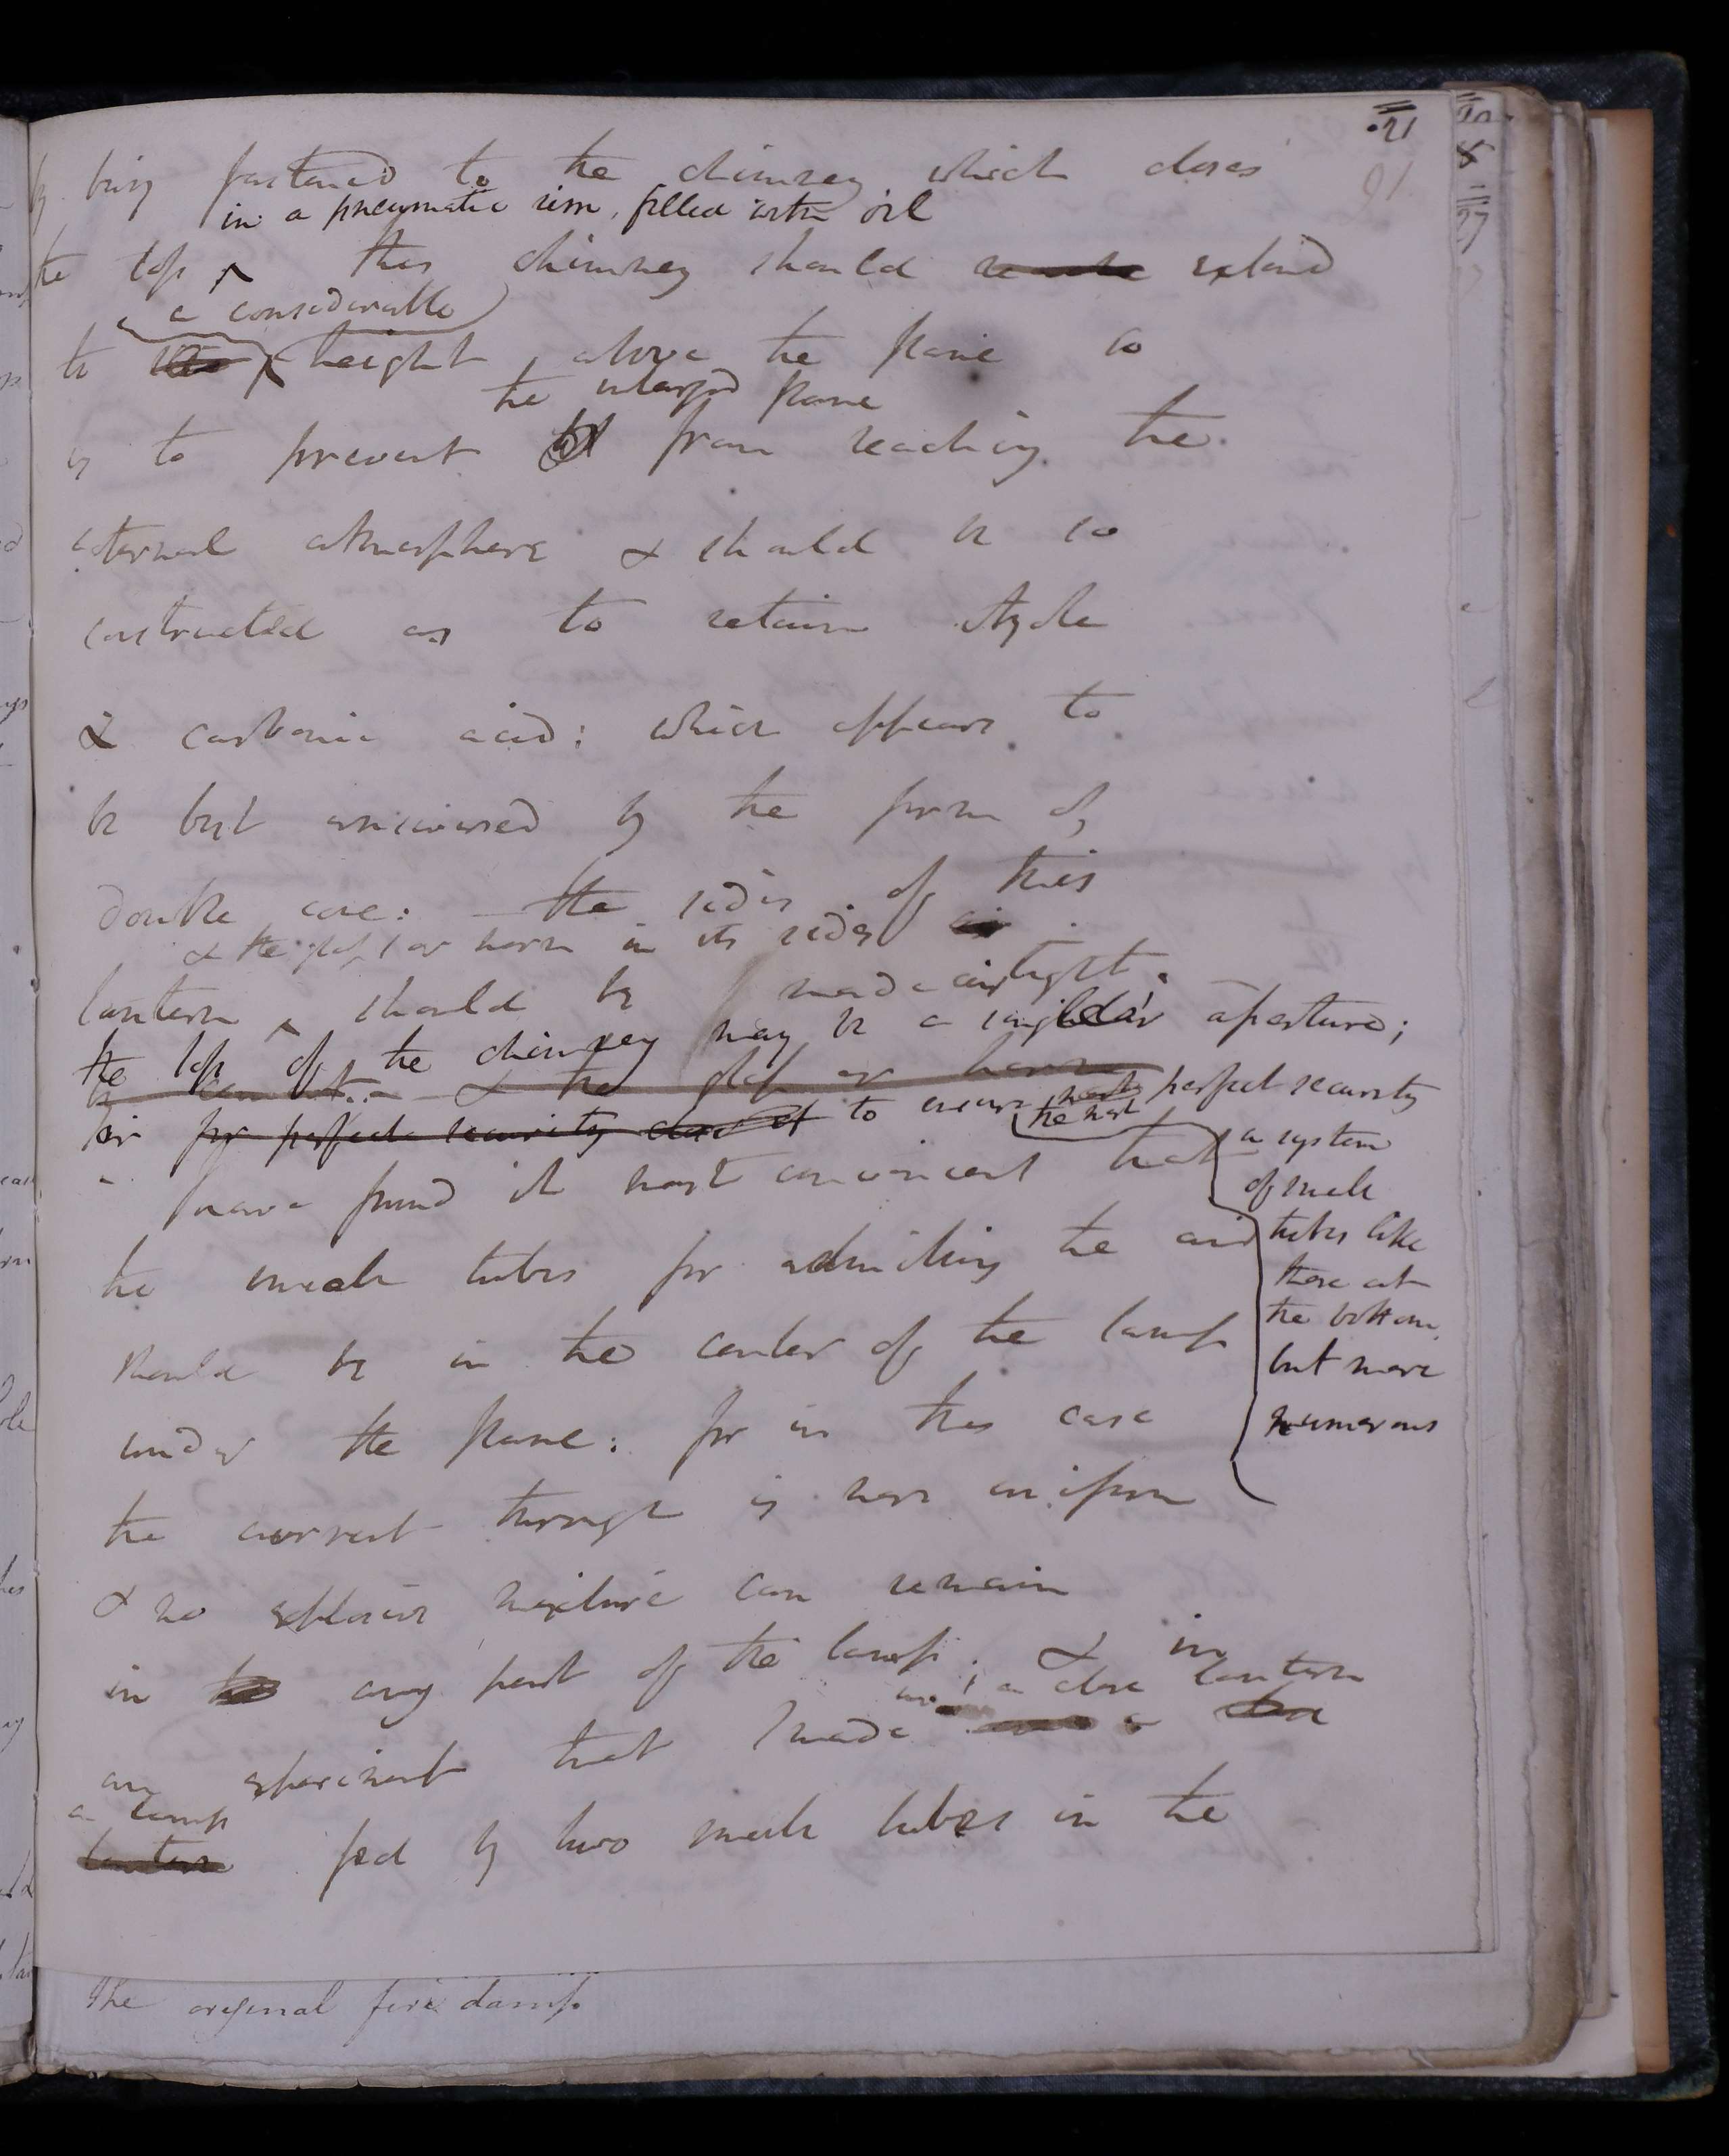 21
91
by being fastened to the chimney which closes
in a pneumatic rim, filled with oil
the top ^ this chimney should extend
a considerable
to the ^ height above the flame so
the enlarged flame
as to prevent it from reaching the
external atmosphere & should be so
constructed as to retain Azote
& carbonic acid: which appears to
be best answered by the form of
double cone: – the sides of this
& the glass or horn in its sides air
lantern ^ should be made air tight.
the top of the chimney may be a single aperture;
& the glass or horn
or for perfect security to ensure the most perfect security
a system
of small
tubes like
those at
the bottom,
but more
numerous
I have found it most convenient that
the small tubes for admitting the air
should be in the center of the lamp
under the flame: for in this case
the current through is more uniform
& no explosive mixture can remain
in the any part of the lamp. & in
in a close lantern
an experiment that I made
a lamp
lantern fed by two small tubes in the
The original fire damp.